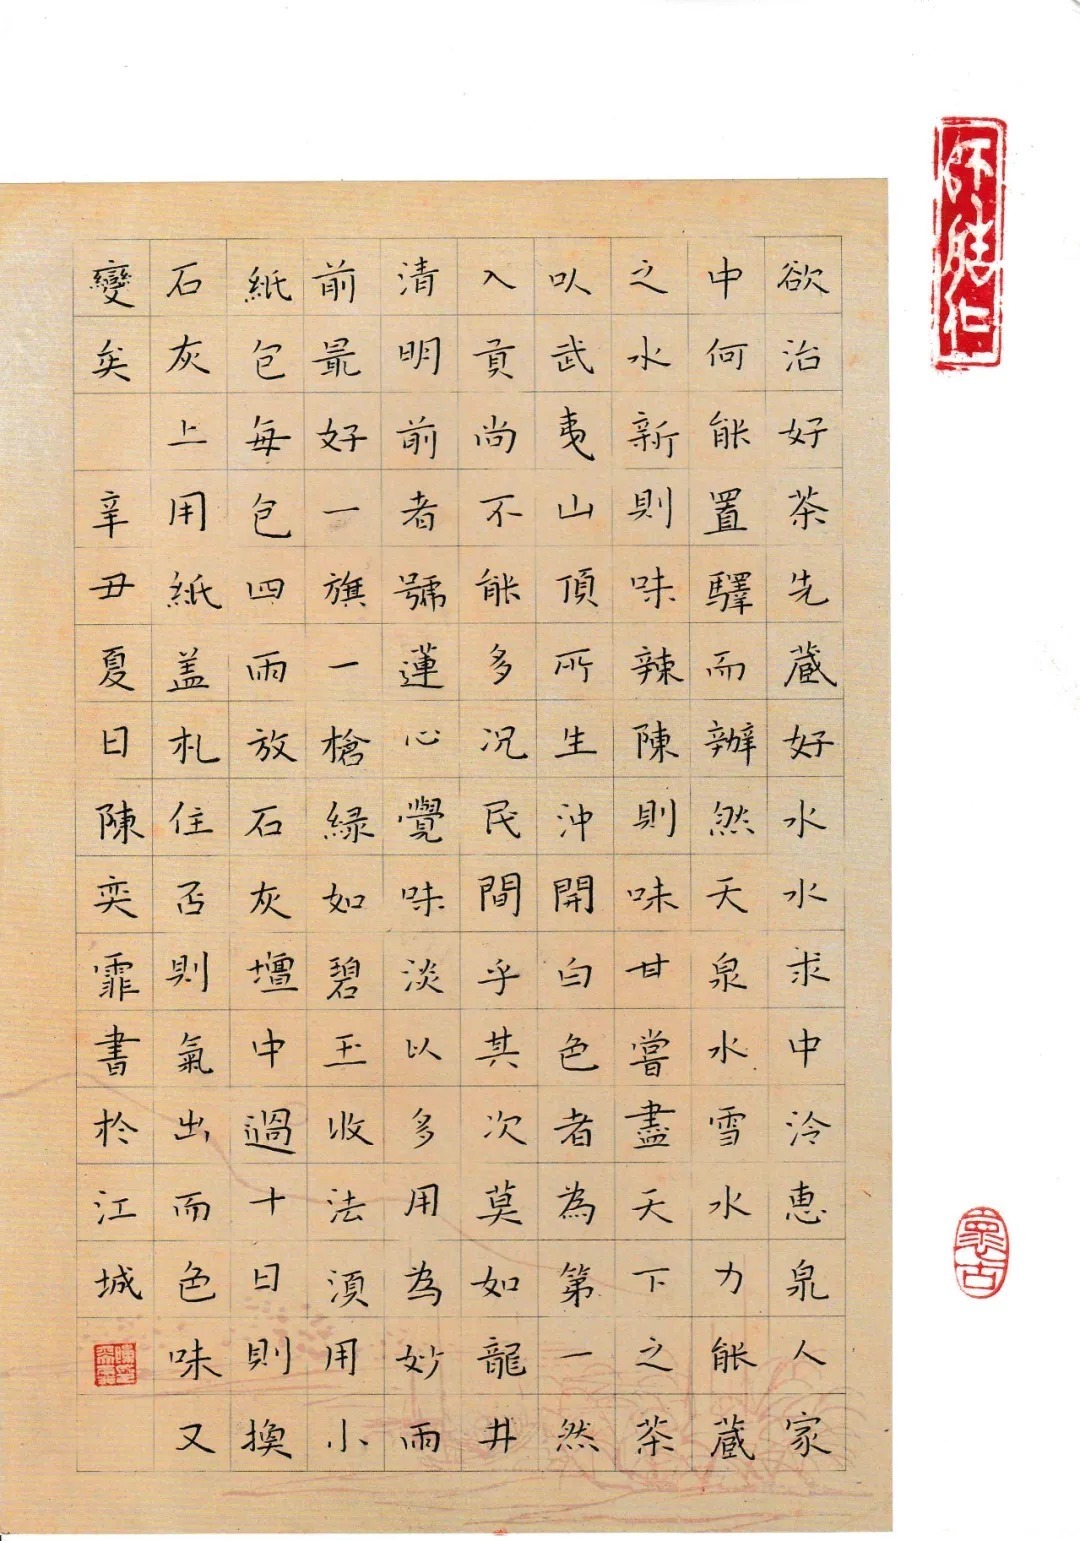 欲治好茶先蔵好水水求中泠恵泉人家
中何能置驛而辦然天泉水雪水力能蔵
之水新則味辣陳則味甘嘗盡天下之茶
以武夷山頂所生沖開白色者為第一然
入貢尚不能多況民間乎其次莫如龍井
清明前者號蓮心覺味淡以多用為妙雨
前最好一旗一槍緑如碧玉收法須用小
紙包每包四兩放石灰壇中過十日則換
石灰上用紙盖札住否則氣出而色味又
變矣 辛丑夏日陳奕霏書於江城
懷古